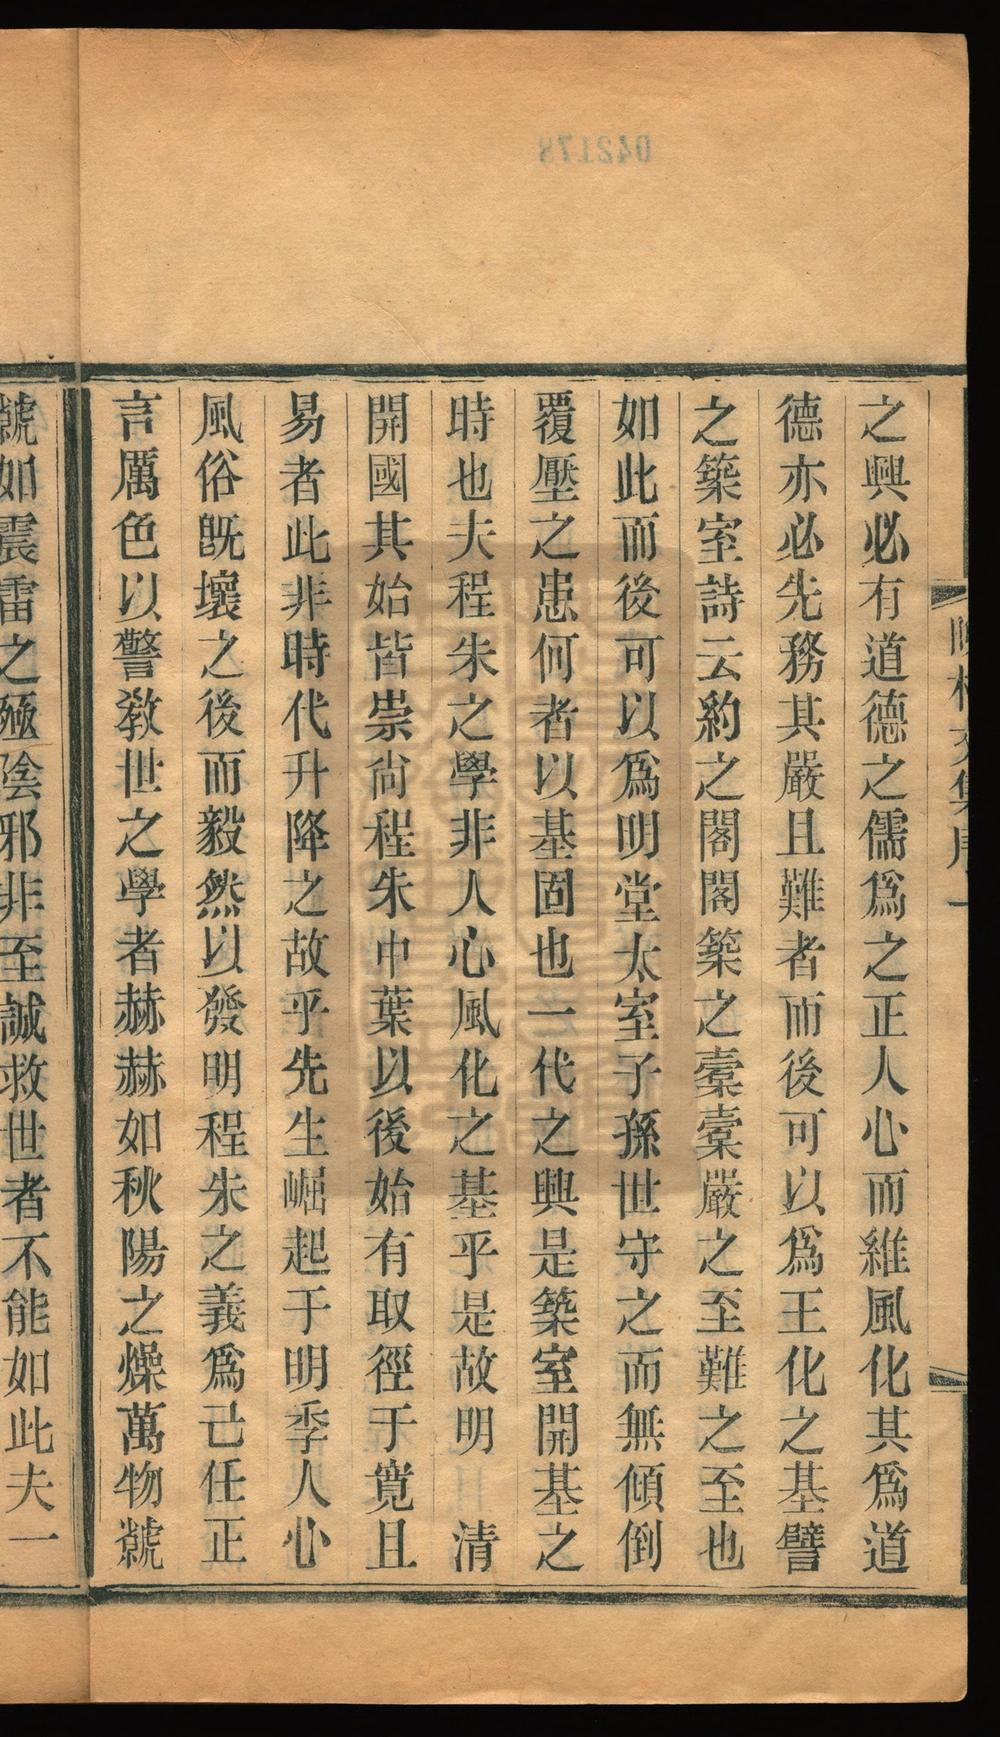 之興必有道德之儒爲之正人心而維風化其爲道
德亦必先務其嚴且難者而後可以爲王化之基譬
之築室詩云約之閣閣築之橐橐嚴之至難之至也
如此而後可以爲明堂太室子孫世守之而無傾倒
覆壓之患何者以基固也一代之興是築室開基之
時也夫程朱之學非人心風化之基乎是故明 清
開國其始皆崇尙程朱中葉以後始有取徑于寬且
易者此非時代升降之故乎先生崛起于明季人心
風俗旣壞之後而毅然以發明程朱之義爲己任正
言厲色以警敎世之學者赫赫如秋陽之燥萬物虩
虩如震雷之殛陰邪非至誠救世者不能如此夫一
042178